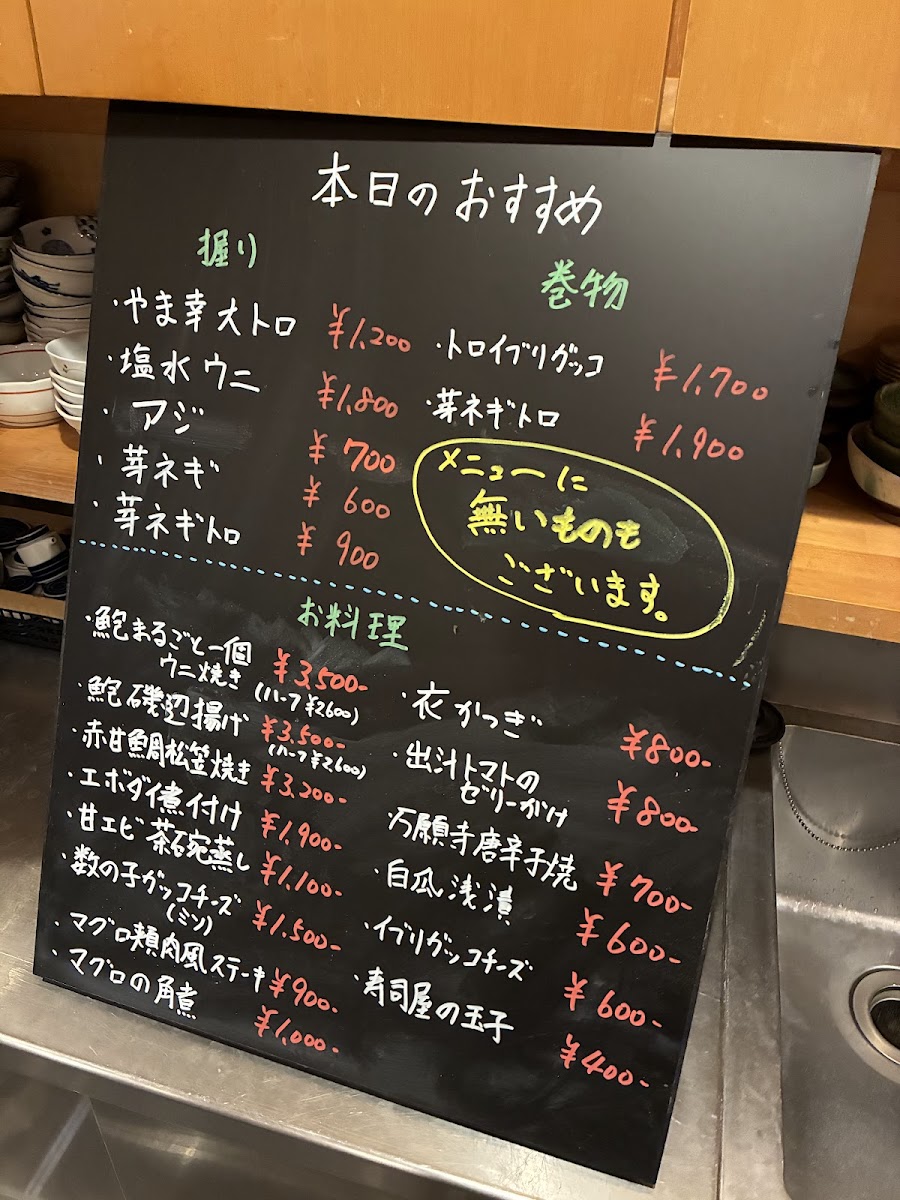 本日のおすすめ
握り
・やま幸大トロ ¥1,200
・塩水ウニ ¥1,800
・アジ ¥700
・芽ネギ ¥600
・芽ネギトロ ¥900
巻物
・トロイブリグッコ ¥1,700
・芽ネギトロ ¥1,900
メニューに
無いものも
ございます。
お料理
・鮑まるごと一個
ウニ焼き ¥3,500-
(ハーフ ¥2600)
・鮑磯辺揚げ ¥3,500-
(ハーフ ¥2,600)
・赤甘鯛松笠焼き ¥3,200-
・エボダイ煮付け ¥1,900-
・甘エビ茶碗蒸し ¥1,100-
・数の子ガッコチーズ
(ミソ) ¥1,500-
・マグロ頬肉風ステーキ ¥900-
・マグロの角煮 ¥1,000-
・衣かつぎ ¥800-
・出汁トマトの
ゼリーがけ ¥800-
・万願寺唐辛子焼 ¥700-
・白瓜浅漬 ¥600-
・イブリグッコチーズ ¥600-
・寿司屋の玉子 ¥400-